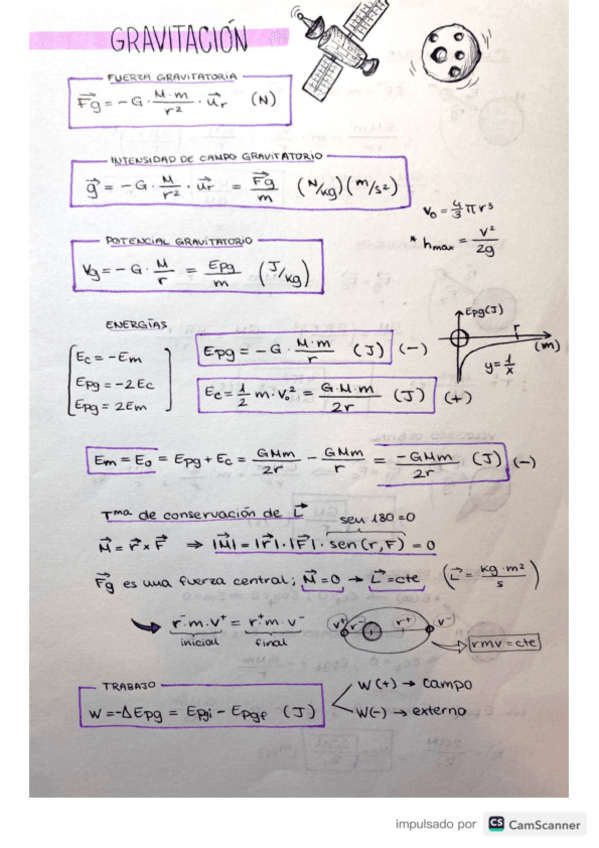 GRAVITACIÓN
FUERZA GRAVITATORIA
F⃗g = -G · M·m/r² · u⃗r (N)
INTENSIDAD DE CAMPO GRAVITATORIO
g⃗ = -G · M/r² · u⃗r = F⃗g/m (N/kg) (m/s²)
V₀ = 4/3 πr³
* hmax = v²/2g
POTENCIAL GRAVITATORIO
Vg = -G · M/r = Epg/m (J/kg)
ENERGÍAS
Ec = -Em
Epg = -2Ec
Epg = 2Em
Epg = -G · M·m/r (J) (-)
Ec = 1/2 m·v₀² = G·M·m/2r (J) (+)
Epg(J)
r
(m)
y = 1/x
Em = E₀ = Epg + Ec = GMm/2r - GMm/r = -GMm/2r (J) (-)
Tma de conservación de L⃗
sen 180=0
M⃗ = r⃗ x F⃗ ⇒ |M⃗| = |r⃗|·|F⃗|· sen(r,F) = 0
F⃗g es una fuerza central; M⃗=0 → L⃗=cte (L⃗ = kg·m²/s)
r⁻·m·v⁺ = r⁺·m·v⁻
inicial final
v⁺ r⁻ r⁺ v⁻
rmv = cte
TRABAJO
W = -ΔEpg = Epgi - Epgf (J)
W(+) → campo
W(-) → externo
impulsado por CS CamScanner